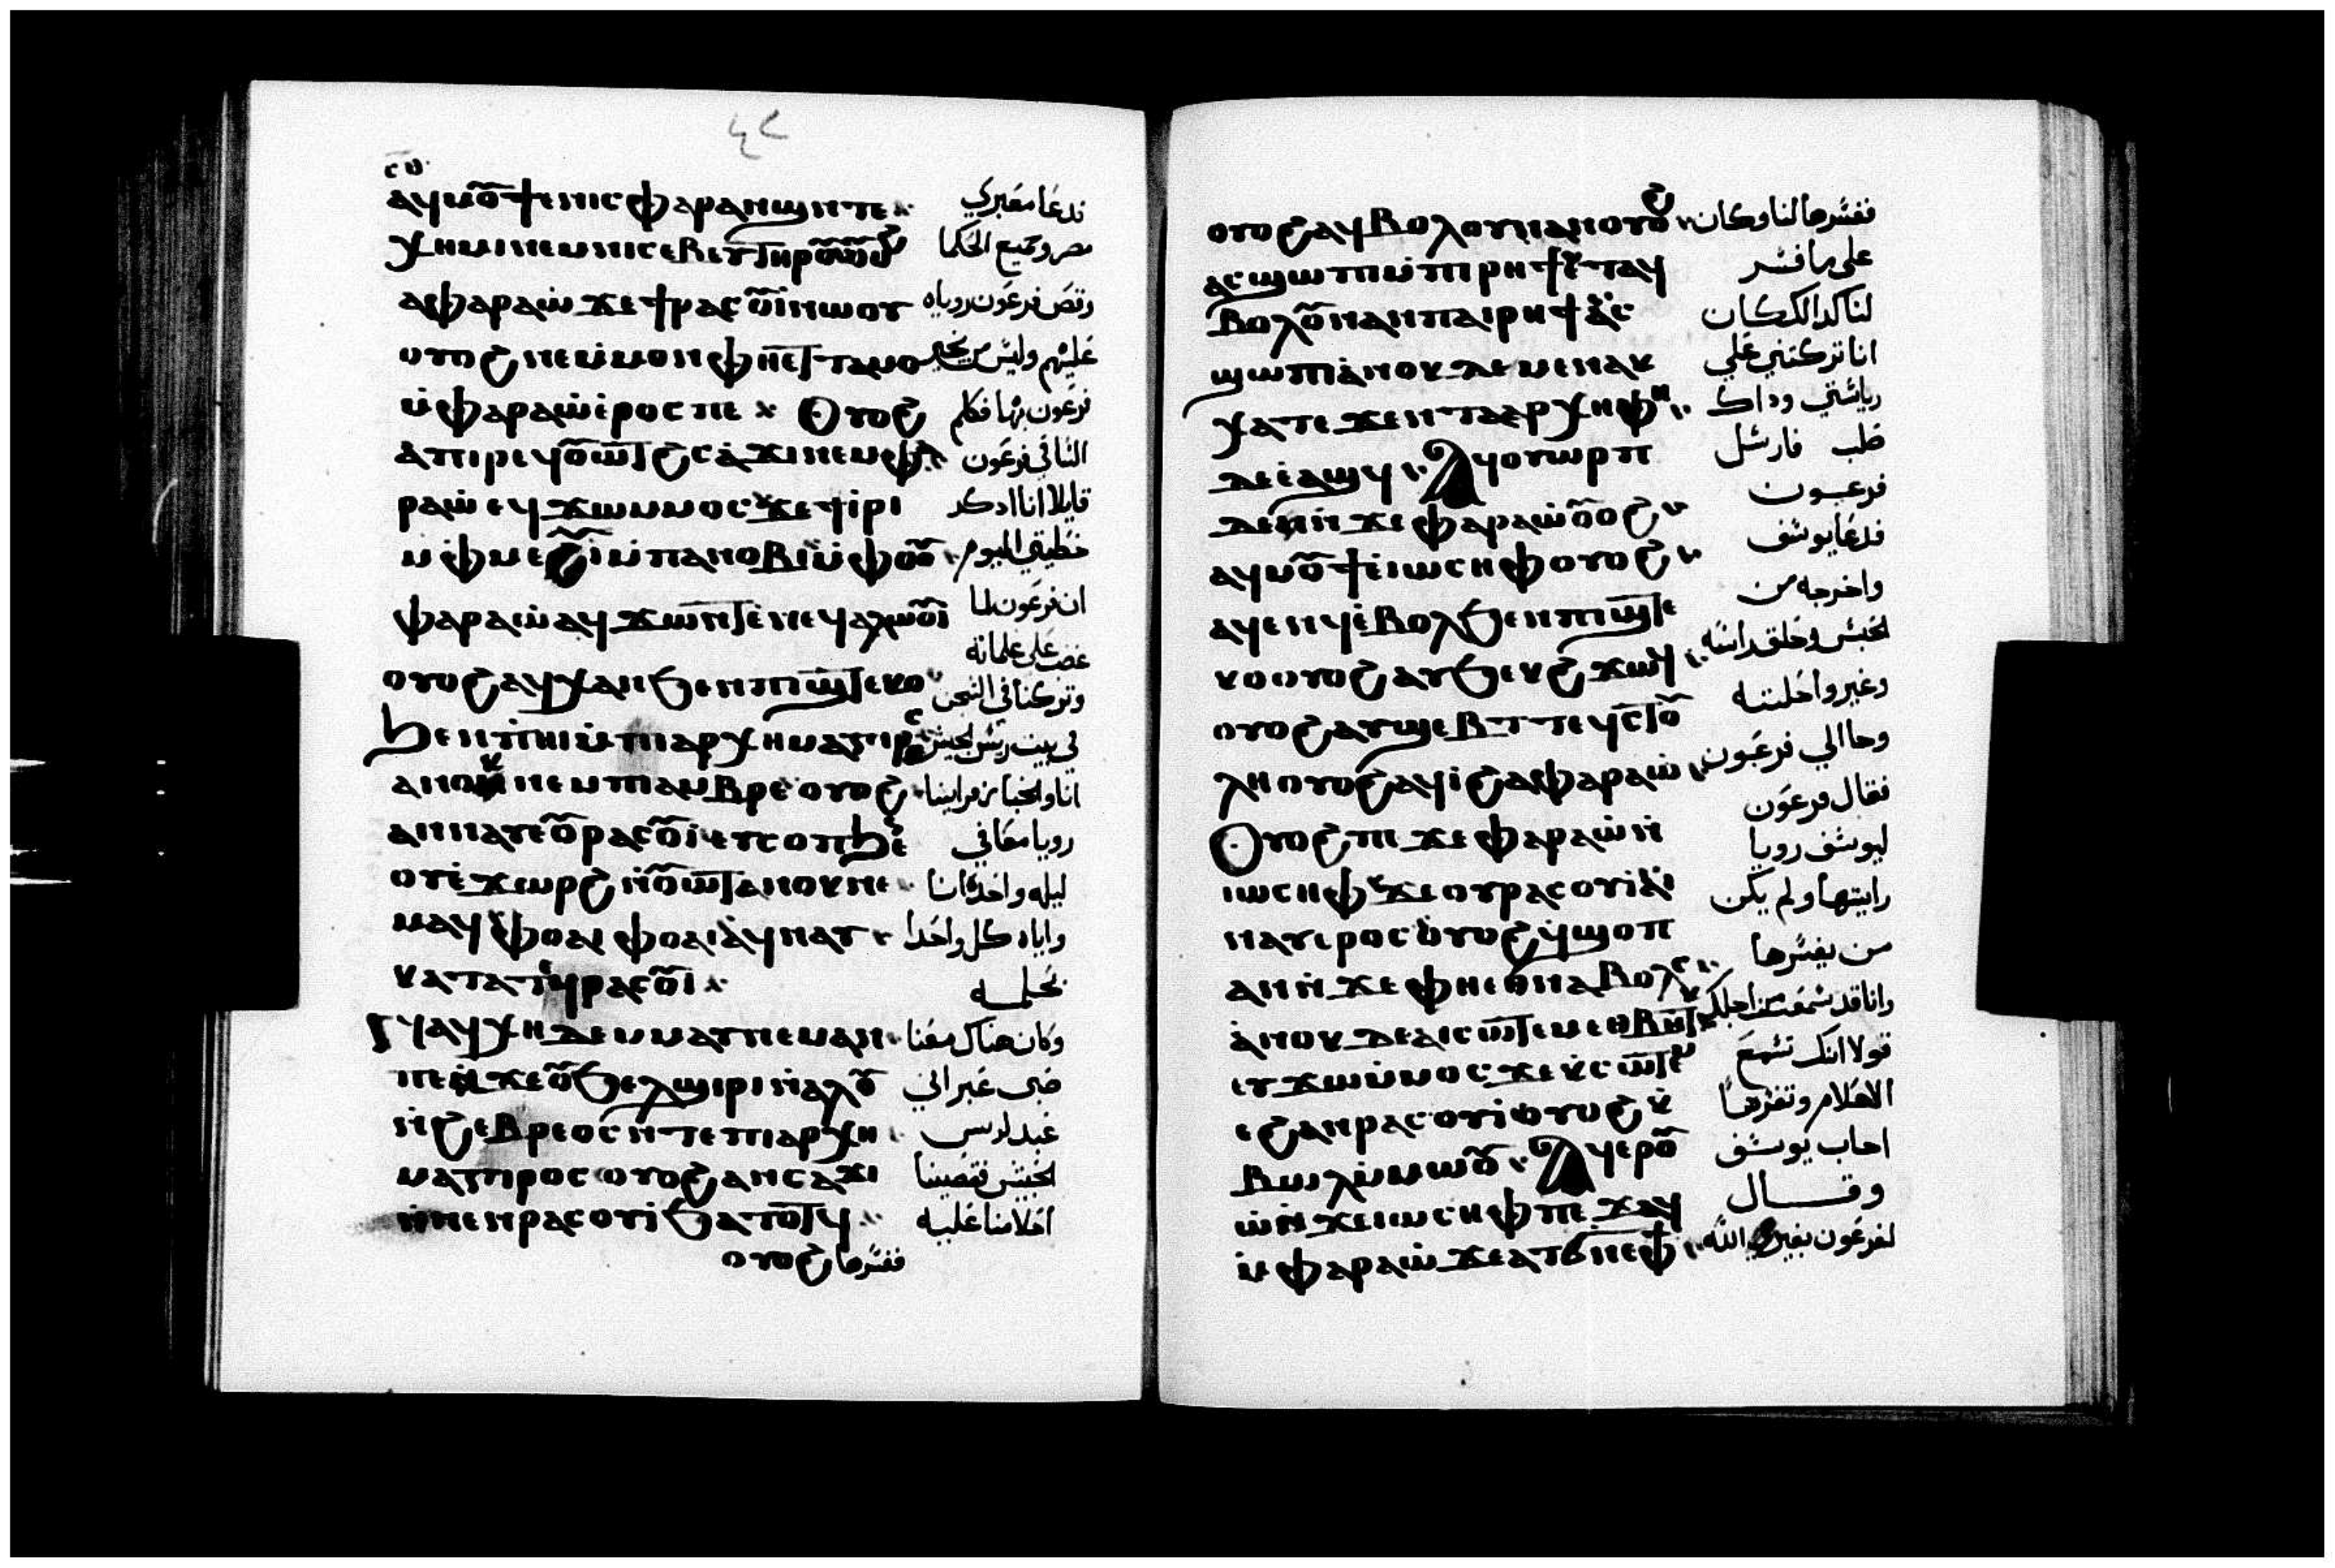 ٤٢
ⲁϥⲙⲟⲩϯⲉⲛⲓⲥⲫⲁⲣⲁⲛϣⲛⲧⲉ فدعا مفسري
ⲭⲏⲙⲓⲛⲉⲙⲛⲓⲥⲁⲃⲉⲩⲧⲏⲣⲟⲩ مصر وجميع الحكما
ⲁⲫⲁⲣⲁⲱ ϫⲉϯⲣⲁⲥⲟⲩⲓⲛⲱⲟⲩ وقص فرعون روياه
ⲟⲩⲟϩⲛⲉⲙⲙⲟⲛⲫⲏⲉⲧⲧⲁⲙⲟ عليهم وليس من يخبر
ⲙⲫⲁⲣⲁⲱⲉⲣⲟⲥⲡⲉ ⲟⲩⲟϩ فرعون بها فكلم
ⲁⲡⲓⲣⲉϥⲟⲩⲱⲧϩⲥⲁϫⲓⲛⲉⲙⲫⲁ الساقي فرعون
ⲣⲁⲱ ⲉϥϫⲱⲙⲙⲟⲥϫⲉϯⲓⲣⲓ قايلا انا ادكر
ⲙⲫⲙⲉⲩⲓⲙⲡⲁⲛⲟⲃⲓⲙⲫⲟⲟⲩ خطيتي اليوم
ⲫⲁⲣⲁⲱⲁϥϫⲱⲛⲧⲉⲛⲉϥⲁⲗⲱⲟⲩⲓ ان فرعون لما
غضب على غلمانه
ⲟⲩⲟϩⲁϥⲭⲁⲛϧⲉⲛⲡⲓϣⲧⲉⲕⲟ وتركنا في السجن
ϧⲉⲛⲡⲏⲓⲙⲡⲓⲁⲣⲭⲏⲙⲁⲅⲓⲣⲟⲥ في بيت ريس الحبس
ⲁⲛⲟⲕⲛⲉⲙⲡⲓⲁⲙⲃⲣⲉ ⲟⲩⲟϩ انا والخباز فراينا
ⲁⲛⲛⲁⲩⲉⲟⲩⲣⲁⲥⲟⲩⲓⲉⲩⲥⲟⲡϧⲉ رويا معا في
ⲟⲩⲉϫⲱⲣϩ ⲛⲟⲩⲱⲧⲁⲛⲟⲕⲛⲉ ليله واحده انا
ⲙⲁϥ ⲫⲟⲩⲁⲓ ⲫⲟⲩⲁⲓⲁϥⲛⲁⲩ واياه كل واحدا
ⲕⲁⲧⲁⲧⲉϥⲣⲁⲥⲟⲩⲓ بحلمه
ⲛⲁϥⲭⲏ ⲇⲉⲙⲙⲁⲩⲡⲉⲙⲁⲛ وكان هناك معنا
ⲡⲉⲛϫⲉⲟⲩϧⲉⲗϣⲓⲣⲓⲛⲁⲗⲟⲩ صبى عبراني
ⲛϩⲉⲃⲣⲉⲟⲥⲛⲧⲉⲡⲓⲁⲣⲭⲏ عبد لريس
ⲙⲁⲅⲓⲣⲟⲥ ⲟⲩⲟϩⲁⲛⲥⲁϫⲓ الحبش فقصينا
ⲛⲛⲉⲛⲣⲁⲥⲟⲩⲓϧⲁⲧⲟⲧϥ احلامنا عليه
ⲟⲩⲟϩ ففسرها
ⲟⲩⲟϩⲁϥⲃⲟⲗⲟⲩⲛⲁⲛⲟⲩⲟϩ ففسرها لنا وكان
ⲁⲥϣⲱⲡⲓⲙⲡⲓⲣⲏϯⲉⲧⲁϥ على ما فسر
ⲃⲟⲗⲟⲩⲛⲁⲛⲡⲁⲓⲣⲏϯⲁⲥ لنا كدالك كان
ϣⲱⲡⲓⲁⲛⲟⲕ ⲇⲉⲙⲉⲛⲁⲕ انا تركتني علي
ⲭⲁⲧⲉϫⲉⲛⲧⲁⲁⲣⲭⲏⲫⲏ رياستي وداك
ⲇⲉⲉⲁϣϥ ⲁϥⲟⲩⲱⲣⲡ صلب فارسل
ⲇⲉⲛϫⲉⲫⲁⲣⲁⲱⲟⲩⲟϩ فرعون
ⲁϥⲙⲟⲩϯⲉⲓⲱⲥⲏⲫⲟⲩⲟϩ فدعا يوسف
ⲁϥⲉⲛϥⲉⲃⲟⲗϧⲉⲛⲡⲓϣⲧⲉ واخرجه من
ⲕⲟⲟⲩⲟϩⲁⲩϧⲉⲕϩϫⲱϥ الحبس وحلق راسه
ⲟⲩⲟϩⲁⲩϣⲉⲃⲧⲧⲉϥⲥⲧⲟ وغير واحلتـه
ⲗⲏⲟⲩⲟϩⲁϥⲓϩⲁⲫⲁⲣⲁⲱ وجا الي فرعون
ⲟⲩⲟϩⲡⲉϫⲉⲫⲁⲣⲁⲱⲛ فقال فرعون
ⲓⲱⲥⲏⲫ ϫⲉⲟⲩⲣⲁⲥⲟⲩⲓⲁⲓ ليوسف رويا
ⲛⲁⲩⲉⲣⲟⲥⲟⲩⲟϩϥϣⲟⲡ رايتها ولم يكن
ⲁⲛⲛϫⲉⲫⲏⲉⲑⲛⲁⲃⲟⲗⲥ من يفسرها
ⲁⲛⲟⲕ ⲇⲉⲁⲓⲥⲱⲧⲉⲙⲉⲑⲃⲏⲧⲕ وانا قد سمعت من اجلك
ⲉⲩϫⲱⲙⲙⲟⲥϫⲉⲕⲥⲱⲧⲉⲙ قولا انك تسمع
ⲉϩⲁⲛⲣⲁⲥⲟⲩⲓⲟⲩⲟϩⲕ الاحلام وتفسرها
ⲃⲱⲗⲙⲙⲱⲟⲩ ⲁϥⲉⲣⲟⲩ اجاب يوسف
ⲱⲛϫⲉⲓⲱⲥⲏⲫⲡⲉϫⲁϥ وقـــال
ⲙⲫⲁⲣⲁⲱϫⲉⲁⲧϭⲛⲉⲫϯ لفرعون بغير الله